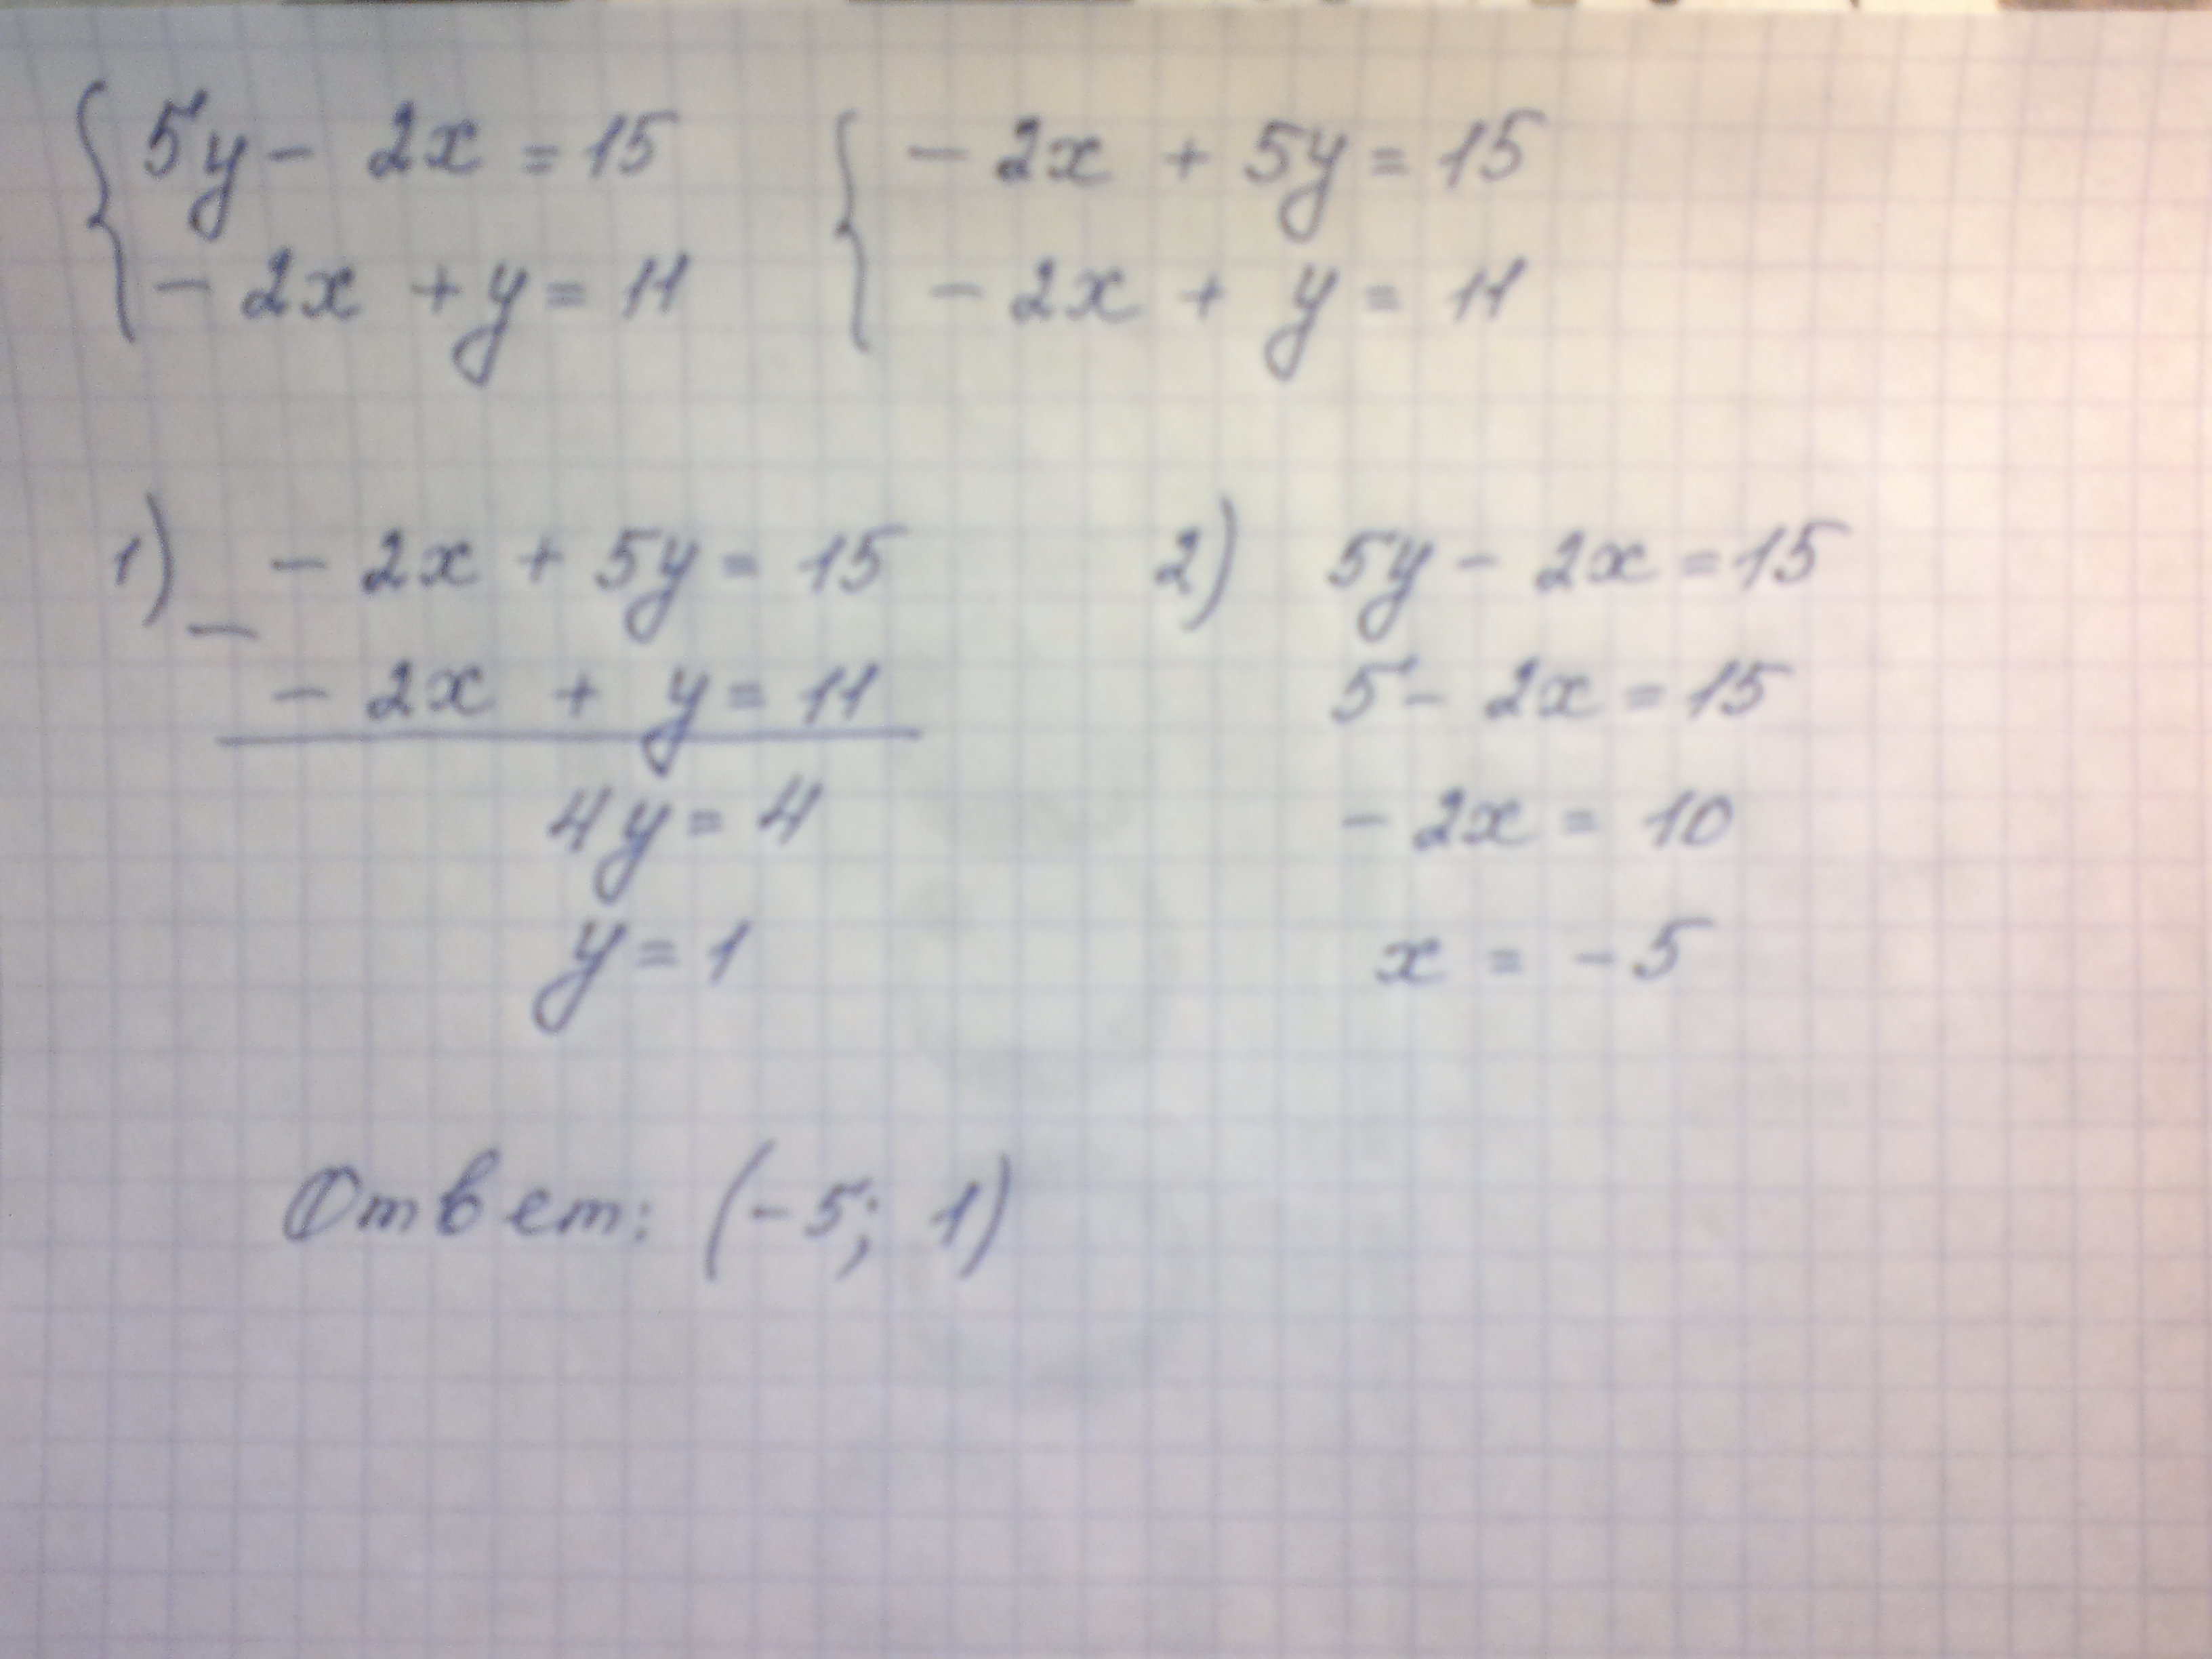 { 5y - 2x = 15 { - 2x + 5y = 15
- 2x + y = 11 - 2x + y = 11
1) - - 2x + 5y = 15
- 2x + y = 11
4y = 4
y = 1
2) 5y - 2x = 15
5 - 2x = 15
- 2x = 10
x = - 5
Ответ: (- 5; 1)